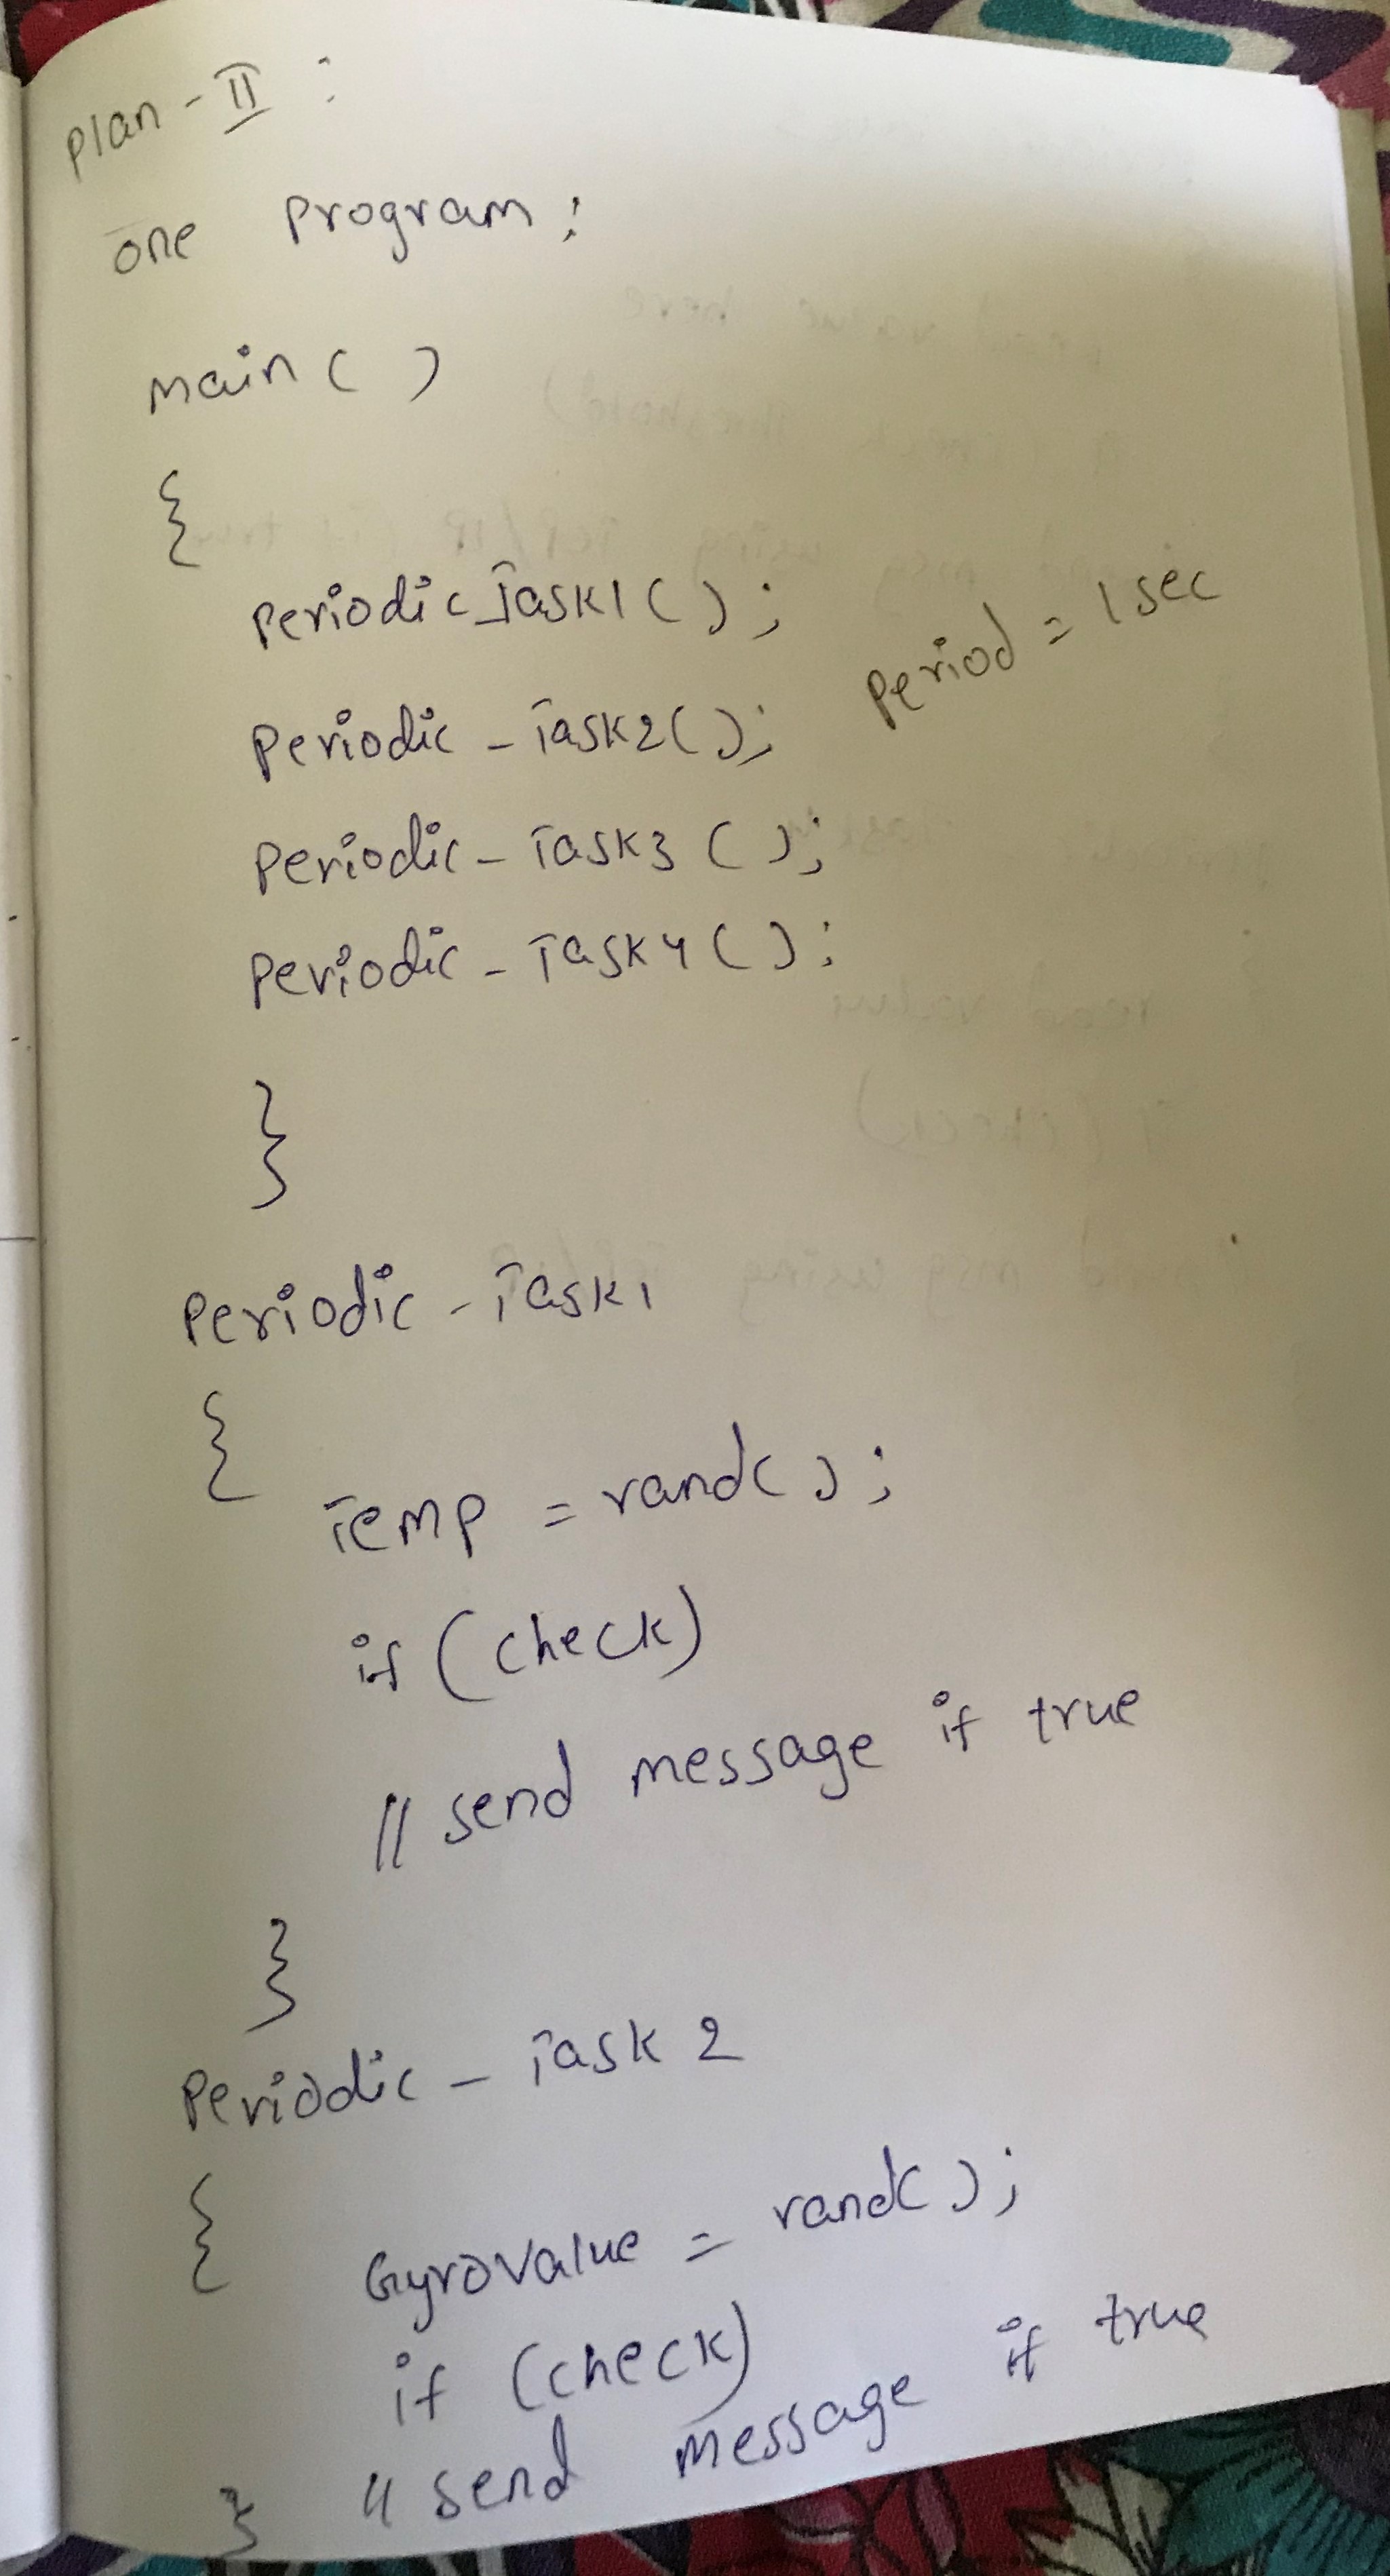 Plan - II :
one program :
main ( )
{
Periodic_Task1 ( ) ;
Period = 1 sec
Periodic - Task2 ( ) ;
Periodic - Task3 ( ) ;
Periodic - Task4 ( ) ;
}
Periodic - Task1
{
Temp = rand( ) ;
if ( check )
// send message if true
}
Periodic - Task 2
{
Gyrovalue = rand( ) ;
if (check)
// send message if true
}